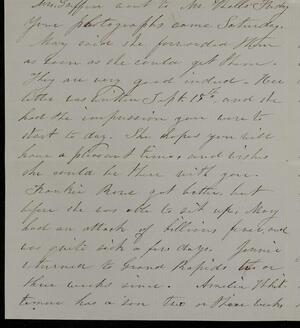 Mrs. Griffin went to Mr. Wells Friday
Your photographs came Saturday.
May said she forwarded them
as soon as she could get them.
They are very good indeed. Her
letter was written Sept. 15th, and she
had the impression you were to
start to day. She hopes you will
have a pleasant time, and wishes
she could be there with you.
Frankie Rose got better, but
before she was able to sit up, May
had an attack of billious fever, and
was quite sick a few days. Jennie
returned to Grand Rapids two or
three weeks since. Amelia Whit-
temore has a son two or three weeks